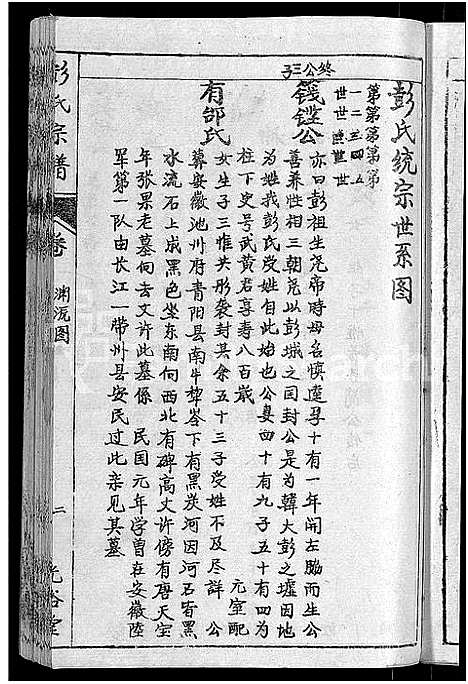 彭氏統宗世系图
第一世
第二世
第三世
第四世
第五世
終公三子
籛鏗公
亦曰彭祖生堯帝時母名慎遠孕十有一年開左脇而生公
善养性相三朝堯以彭城之国封公是为韓大彭之墟因地
为姓我彭氏受姓自此始也公妻四十有九子五十有四为
柱下史号武黄君享寿八百歲
元室配
有邰氏
女生子三惟共形袭封其余五十三子受姓不及尽詳
公
葬安徽池州府青阳县南牛犂岺下有黑炭河因河石皆黑
水流石上成黑色坐东南向西北有碑高丈许傍有唐天宝
年张果老墓向去丈许此墓係
民国元年学曾在安徽陸
軍第一队由长江一带州县安民过此亲见其墓
彭氏宗谱
卷
渊流图
二
光裕堂